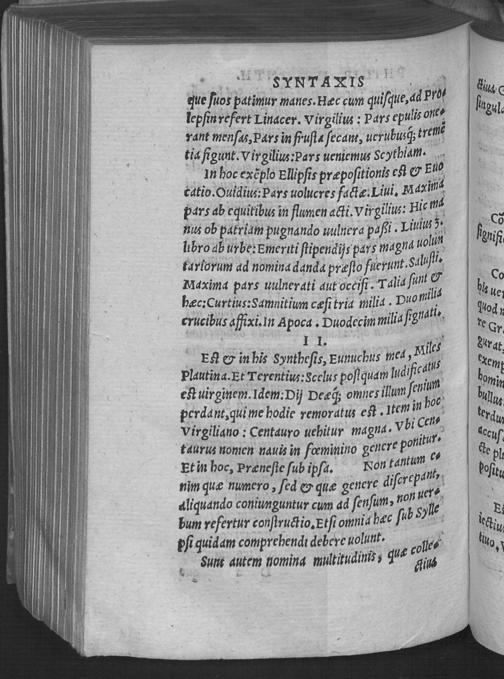 SYNTAXIS
que suos patimur manes. Hæc cum quisque, ad Pro
lepsin refert Linacer. Virgilius: Pars epulis one-
rant mensas, Pars in frusta secant, uerubusq; tremẽ
tia figunt. Virgilius: Pars ueniemus Scythiam.
In hoc exẽplo Ellipsis præpositionis est & Euo
catio. Ouidius: Pars uolucres factæ. Liui. Maxima
pars ab equitibus in flumen acti. Virgilius: Hic ma
nus ob patriam pugnando uulnera passi. Liuius 3.
libro ab urbe: Emeriti stipendijs pars magna uolun
tariorum ad nomina danda præsto fuerunt. Salusti.
Maxima pars uulnerati aut occisi. Talia sunt &
hæc: Curtius: Samnitium cæsi tria milia. Duo milia
crucibus affixi. In Apoca. Duodecim milia signati.
II.
Est & in his Synthesis, Eunuchus mea, Miles
Plautina. Et Terentius: Scelus postquam ludificatus
est uirginem. Idem: Dij Deæq; omnes illum senium
perdant, qui me hodie remoratus est. Item in hoc
Virgiliano: Centauro uehitur magna. Vbi Cen-
taurus nomen nauis in fœminino genere ponitur.
Et in hoc, Præneste sub ipsa. Non tantum e-
nim quæ numero, sed & quæ genere discrepant,
aliquando coniunguntur cum ad sensum, non uer-
bum refertur constructio. Etsi omnia hæc sub Sylle
psi quidam comprehendi debere uolunt.
Sunt autem nomina multitudinis, quæ colle-
ctius